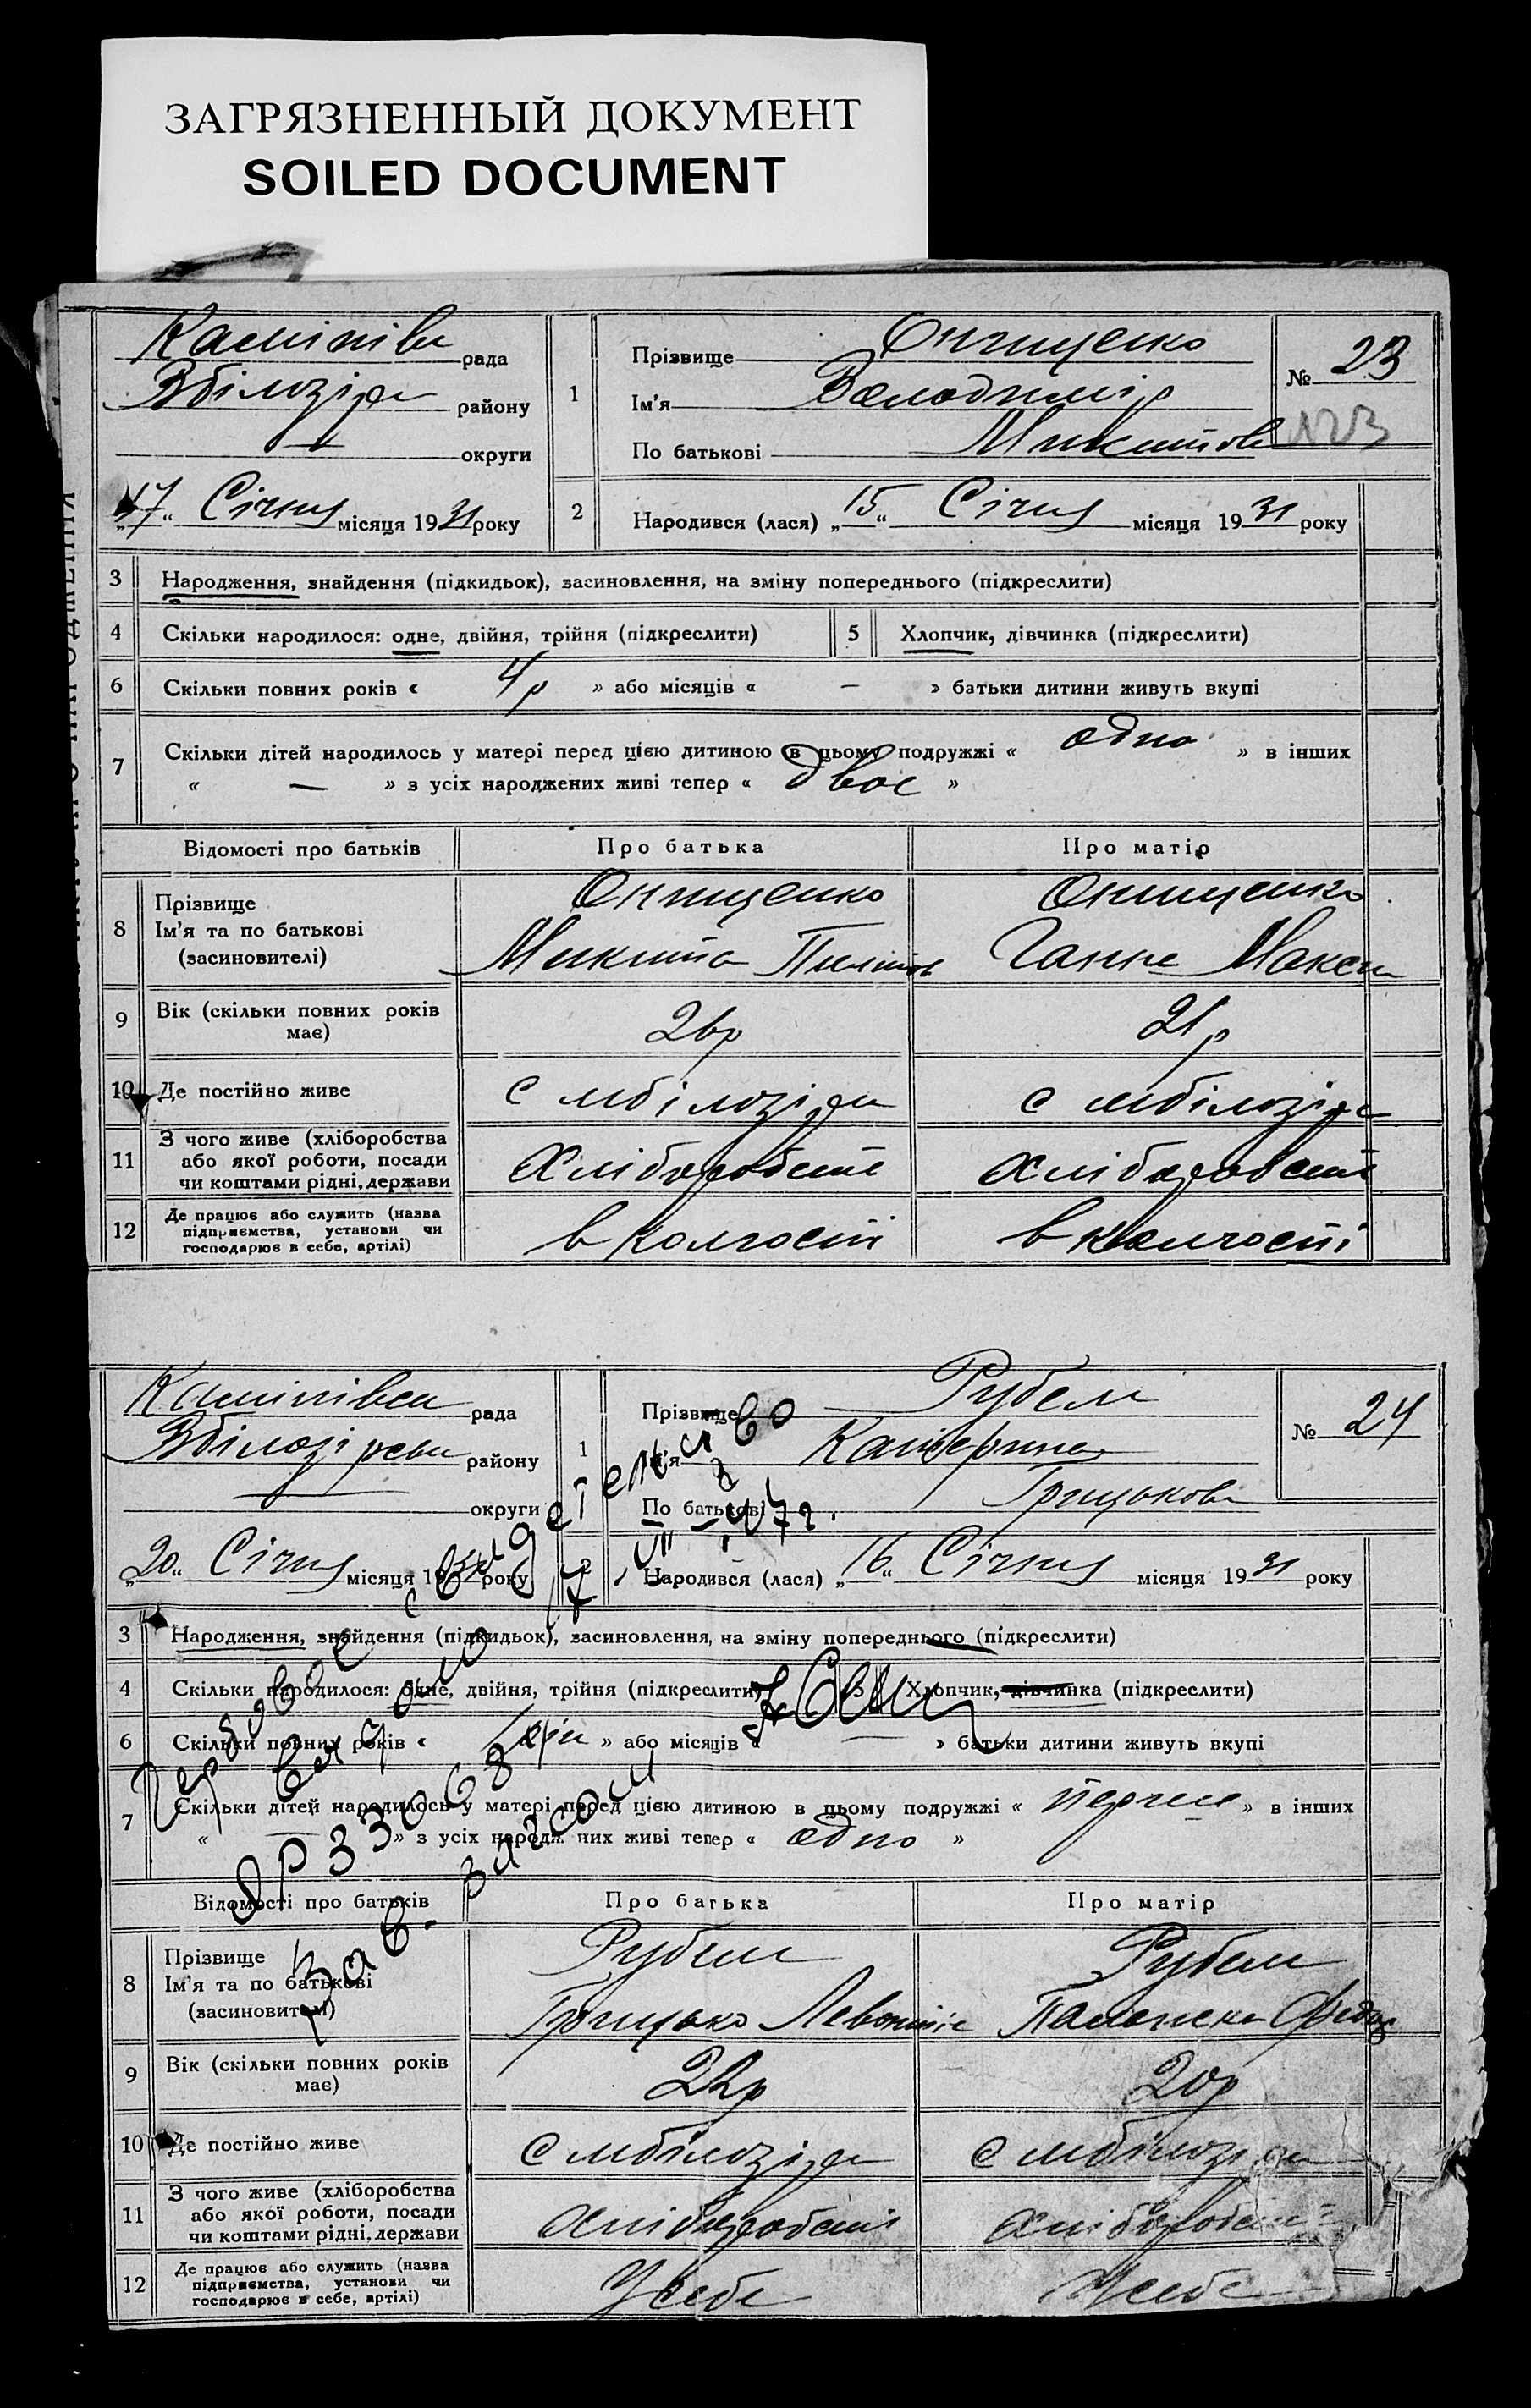 ЗАГРЯЗНЕННЫЙ ДОКУМЕНТ
SOILED DOCUMENT
рада
району
округи
„17“ Січня місяця 1931 року
1
Прізвище Онищенко
Ім'я Володимір
По батькові Микитов
№ 23
2
Народився (лася) „15“ Січня місяця 1931 року
3 Народження, знайдення (підкидьок), засиновлення, на зміну попереднього (підкреслити)
4 Скільки народилося: одне, двійня, трійня (підкреслити) 5 Хлопчик, дівчинка (підкреслити)
6 Скільки повних років « 4р » або місяців « — » батьки дитини живуть вкупі
7 Скільки дітей народилось у матері перед цією дитиною в цьому подружжі « одно » в інших
« — » з усіх народжених живі тепер « двоє »
Відомості про батьків Про батька Про матір
8 Прізвище Онищенко Онищенко
Ім'я та по батькові Микита Ганна Макси
(засиновителі)
9 Вік (скільки повних років має) 26р 21р
10 Де постійно живе с мбілозір с мбілозір
11 З чого живе (хліборобства або якої роботи, посади чи коштами рідні, держави Хліборобств Хліборобств
12 Де працює або служить (назва підприємства, установи чи господарює в себе, артілі) в колгоспі в колгоспі
рада
району
округи
„20“ Січня місяця 1931 року
1
Прізвище Рубель
Ім'я Катерина
По батькові Грицькова
№ 24
2
Народився (лася) „16“ Січня місяця 1931 року
3 Народження, знайдення (підкидьок), засиновлення, на зміну попереднього (підкреслити)
4 Скільки народилося: одне, двійня, трійня (підкреслити) 5 Хлопчик, дівчинка (підкреслити)
6 Скільки повних років « » або місяців « — » батьки дитини живуть вкупі
7 Скільки дітей народилось у матері перед цією дитиною в цьому подружжі « перше » в інших
« — » з усіх народжених живі тепер « одно »
Гербовое свидетельство
выдано
Зав. загсом
Відомості про батьків Про батька Про матір
8 Прізвище Рубель Рубель
Ім'я та по батькові Грицько Пелагея Федор
(засиновителі)
9 Вік (скільки повних років має) 22р 20р
10 Де постійно живе с мбілозір с мбілозір
11 З чого живе (хліборобства або якої роботи, посади чи коштами рідні, держави Хліборобств Хліборобств
12 Де працює або служить (назва підприємства, установи чи господарює в себе, артілі) У себе У себе